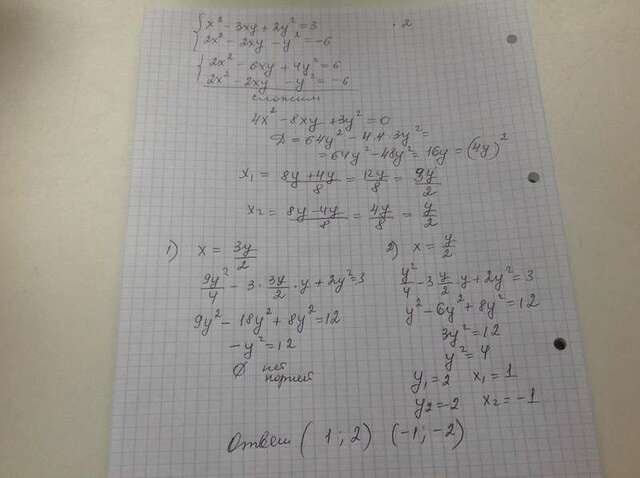 {x² - 3xy + 2y² = 3 · 2
{2x² - 2xy - y² = -6
{2x² - 6xy + 4y² = 6
{2x² - 2xy - y² = -6
сложим
4x² - 8xy + 3y² = 0
D = 64y² - 4·4·3y² =
= 64y² - 48y² = 16y = (4y)²
x₁ = (8y + 4y)/8 = 12y/8 = 9y/2
x₂ = (8y - 4y)/8 = 4y/8 = y/2
1) x = 3y/2
9y²/4 - 3 · 3y/2 · y + 2y² = 3
9y² - 18y² + 8y² = 12
-y² = 12
∅ нет
корней
2) x = y/2
y²/4 - 3 y/2 · y + 2y² = 3
y² - 6y² + 8y² = 12
3y² = 12
y² = 4
y₁ = 2 x₁ = 1
y₂ = -2 x₂ = -1
Ответ (1; 2) (-1; -2)